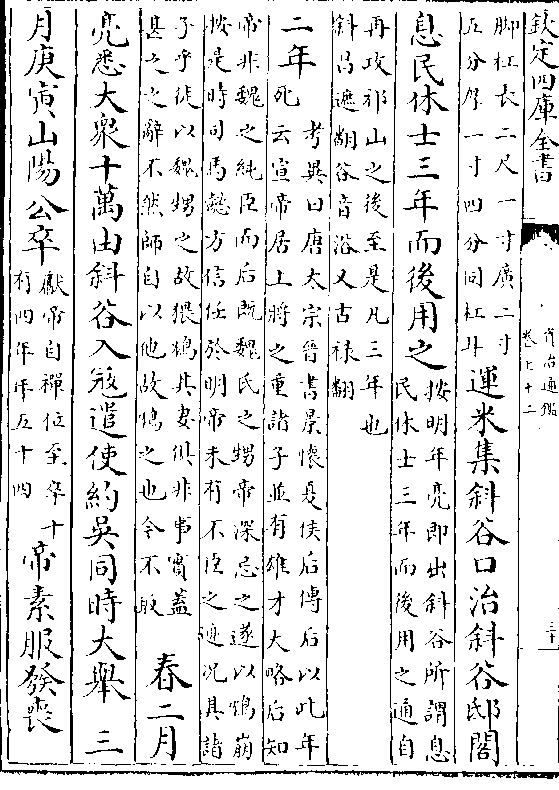 欽定四庫全書
資治通鑑
卷七十二
脚杠長二尺一寸廣二寸
五分厚一寸四分同杠耳
運米集斜谷口治斜谷邸閣
息民休士三年而後用之
按明年亮即出斜谷所謂息
民休士三年而後用之通自
再攻祁山之後至是凡三年也
斜昌遮翻谷音浴又古祿翻
二年
考異曰唐太宗晉書景懷夏侯后傳后以此年
死云宣帝居上將之重諸子並有雄才大略后知
帝非魏之純臣而后既魏氏之甥帝深忌之遂以鴆崩
按是時司馬懿方信任於明帝未有不臣之迹况其諸
子乎徒以魏甥之故猥鴆其妻俱非事實蓋
甚之之辭不然師自以他故鴆之也今不取
春二月
亮悉大衆十萬由斜谷入寇遣使約吳同時大舉 三
月庚寅山陽公卒
獻帝自禪位至卒十
有四年年五十四
帝素服發喪